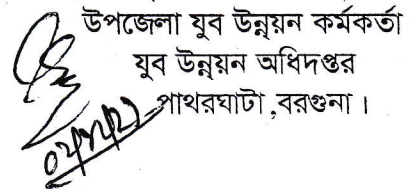 উপজেলা যুব উন্নয়ন কর্মকর্তা
যুব উন্নয়ন অধিদপ্তর
পাথরঘাটা ,বরগুনা ।